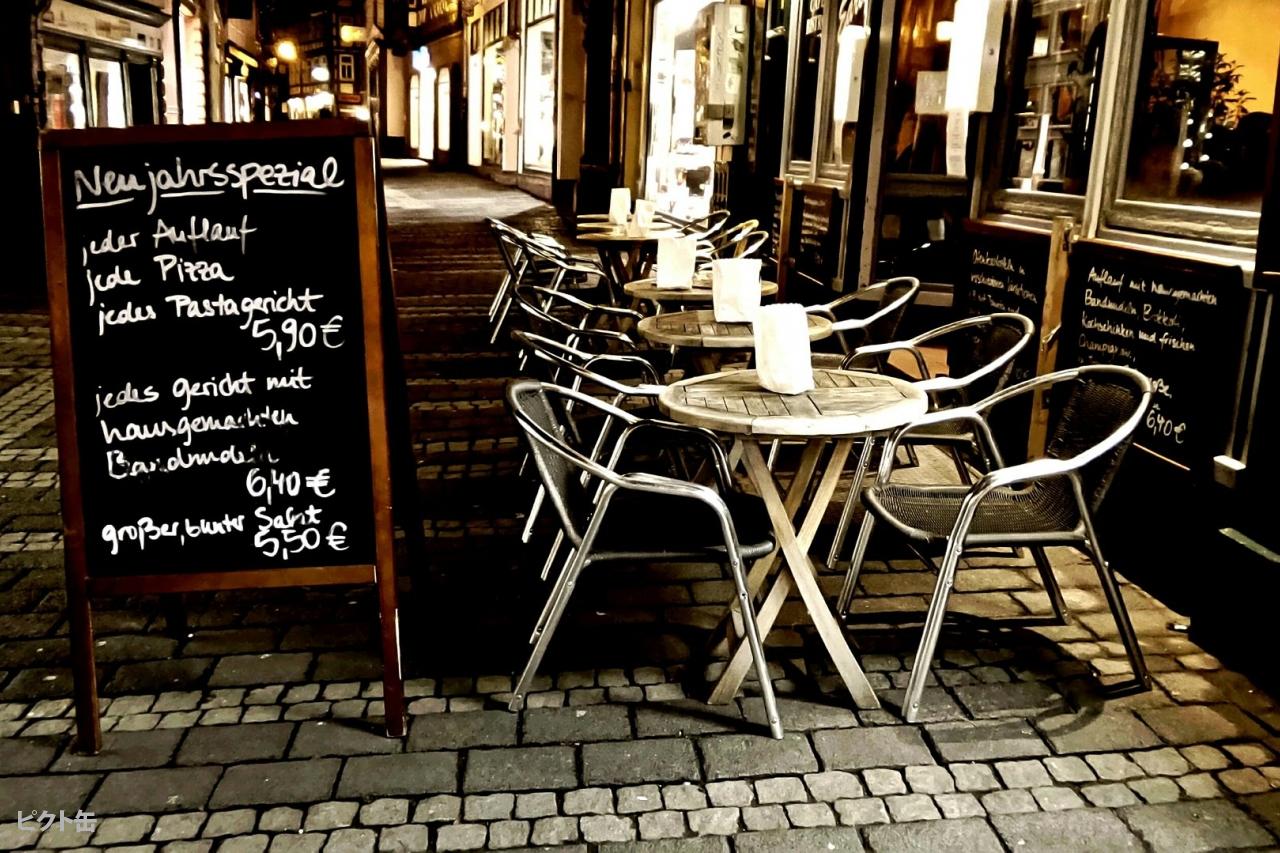 Neujahrsspezial
jeder Auflauf
jede Pizza
jedes Pastagericht
5,90 €
jedes gericht mit
hausgemachten
Bandnudeln
6,40 €
großer, bunter Salat
5,50 €
Auflauf mit hausgemachten
Bandnudeln
Kochschinken und frischen
6,40 €
ピクト缶